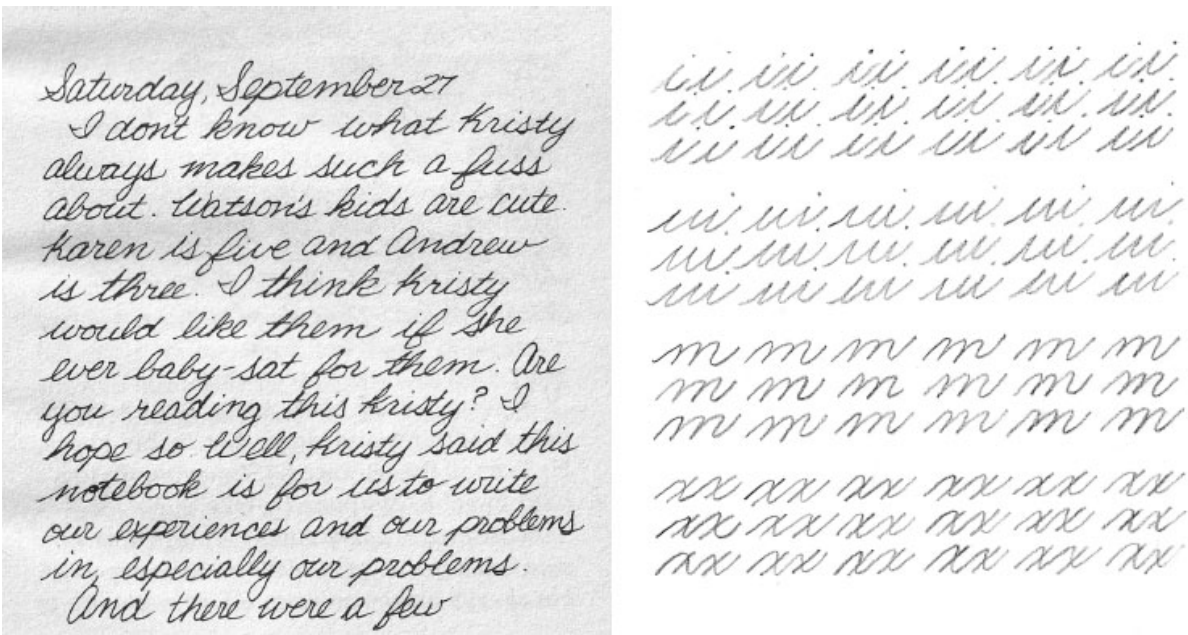 Saturday, September 27
I dont know what Kristy
always makes such a fuss
about. Watson's kids are cute.
Karen is five and Andrew
is three. I think Kristy
would like them if she
ever baby-sat for them. Are
you reading this Kristy? I
hope so. Well, Kristy said this
notebook is for us to write
our experiences and our problems
in, especially our problems.
And there were a few
ii ii ii ii ii ii
ii ii ii ii ii ii
ii ii ii ii ii ii
m m m m m m
m m m m m m
m m m m m m
xx xx xx xx xx xx
xx xx xx xx xx xx
xx xx xx xx xx xx